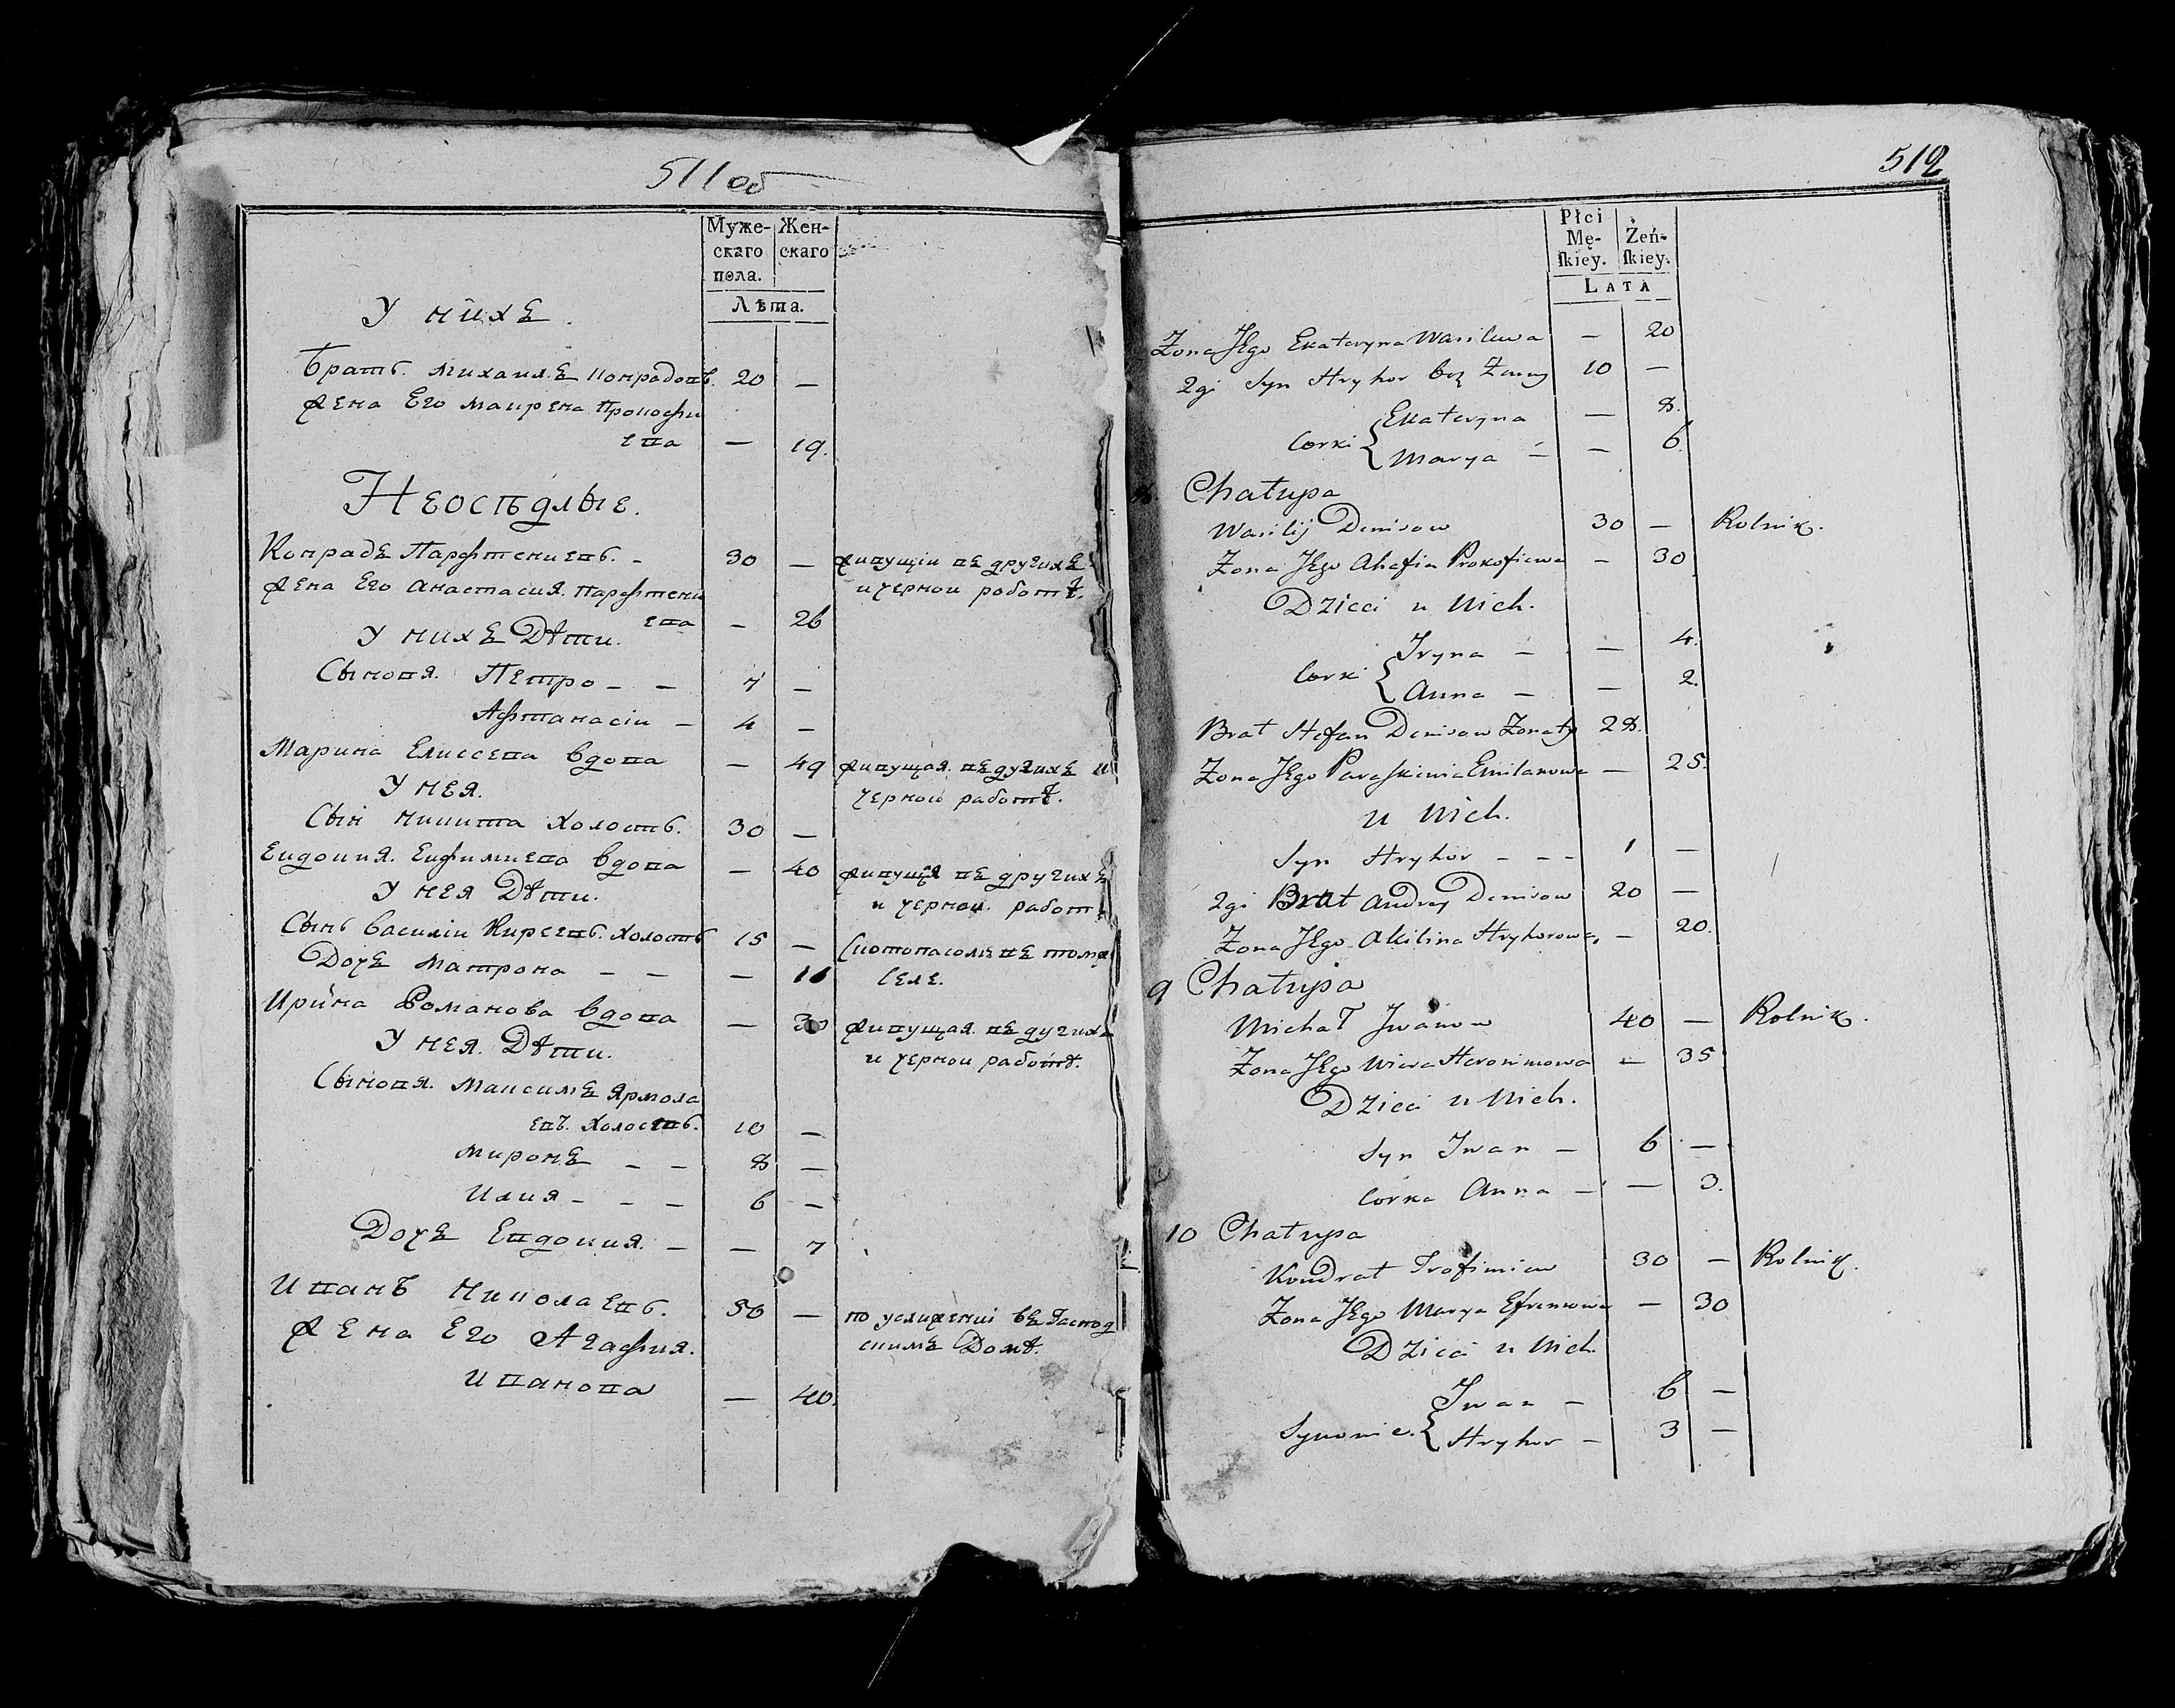 511 об
Муже-
скаго
пола.
Жен-
скаго
Лѣта.
У нихъ
Братъ. Михаилъ Кондратовъ. 20 —
Жена Его Маврена Прокофи
ева — 19.
Неосѣдлые.
Кондратъ Парфтениевъ. - 30 — живущіи въ другихъ
Жена Его Анастасия. Парфтени и черной роботѣ.
ева — 26
У нихъ Дѣти.
Сыновя. Петро - - 7 —
Афтанасіи - 4 —
Марина Елисеева вдова — 49 живущая. въ дугихъ и
У нея. черной работѣ.
Сын Никита холостъ. 30 —
Евдокия. Евфимиева вдова — 40 живущя въ другихъ
У нея Дѣти. и черной. работ
Сынъ Василіи Кирсевъ. холостъ 15 — Скотопасомъ въ томъ
Дочъ Матрона - - — 10 селе.
Ирина Романова вдова — 30 живущая. въ дугихъ
У нея. Дѣти. и черной работѣ.
Сыновя. Максимъ Ярмола
евъ. холостъ. 10 —
Миронъ - - 8 —
Илия - - - 6 —
Дочъ Евдокия. - — 7
Иванъ Николаевъ. 50 — по услужении въ Господ
Жена Его Агафия. скимъ Домѣ.
Иванова — 40.
512
Płci
Mę-
skiey.
Żeń-
skiey.
LATA
Żona Jego Ekateryna Wasilewa — 20
2gi Syn Hryhor bez Żenny 10 —
Ekateryna — 8.
Corki { Marya - — 6.
8. Chałupa
Wasilij Denisow 30 — Rolnik.
Żona Jego Ahafia Prokofiewa — 30
Dzieci u Nich.
Iryna - — 4.
Corki { Anna - — 2.
Brat Stefan Denisow Żonaty 28.
Żona Jego Paraskiwia Emilanowa — 25.
u Nich.
Syn Hryhor - - - 1 —
2gi Brat Andrey Denisow 20 —
Żona Jego Akilina Hryhorowa, — 20.
9 Chałupa
Michał Iwanow 40 — Rolnik.
Żona Jego Wiera Heronimowa — 35
Dzieci u Nich.
Syn Iwan - 6 —
Corka Anna - — 3.
10 Chałupa
Kondrat Trofimiew 30 — Rolnik.
Żona Jego Marya Efremowa — 30
Dzieci u Nich
Iwan - 6 —
Synowie. { Hryhor - 3 —